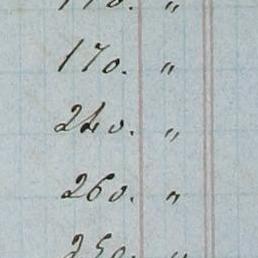 170. "
240. "
260. "
250. "